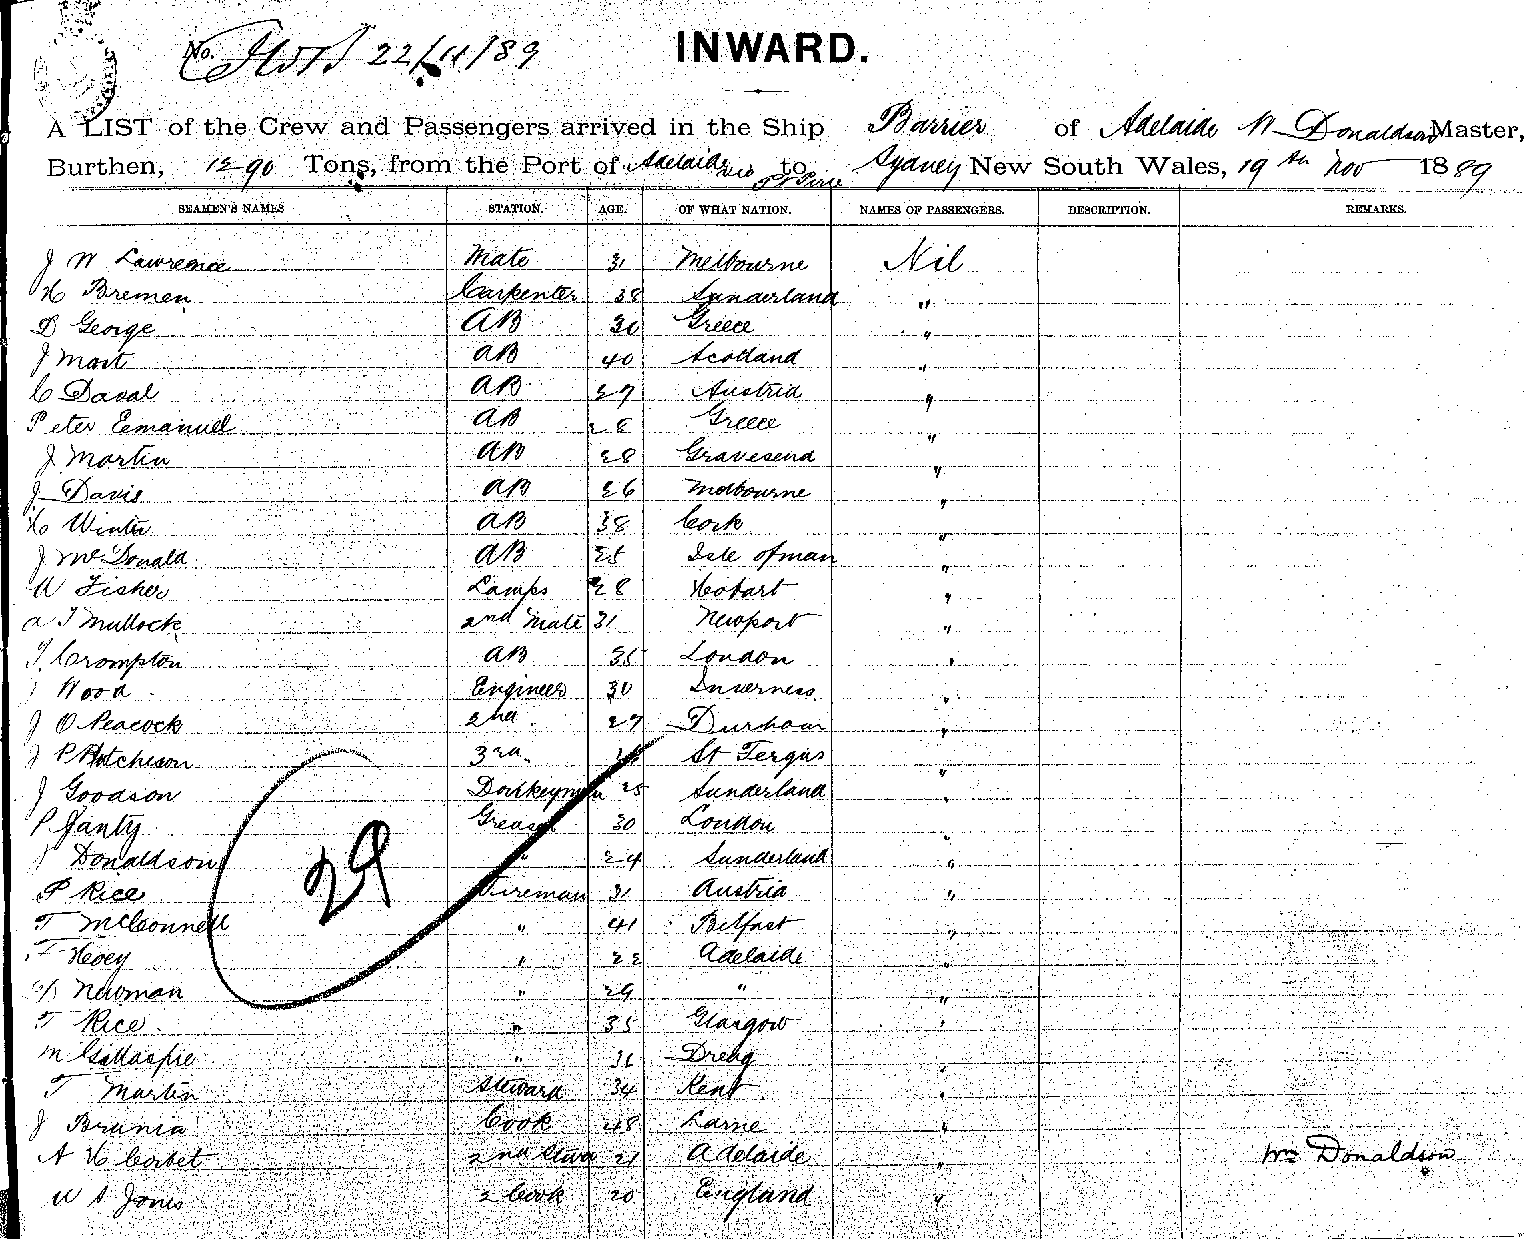 No. 22/11/89
INWARD.
A LIST of the Crew and Passengers arrived in the Ship Barrier of Adelaide W Donaldson Master,
Burthen, 1290 Tons, from the Port of Adelaide via Pt Pirie to Sydney New South Wales, 19th Nov 1889
SEAMEN'S NAMES STATION. AGE. OF WHAT NATION. NAMES OF PASSENGERS. DESCRIPTION. REMARKS.
J W Lawrence Mate 31 Melbourne Nil
H Bremen Carpenter 38 Sunderland "
D George AB 30 Greece "
J Mart AB 40 Scotland "
C Daval AB 27 Austria "
Peter Eemanuel AB 28 Greece "
J Martin AB 28 Gravesend "
J Davis AB 26 Melbourne "
H Winter AB 38 Cork "
J McDonald AB 25 Isle of man "
W Fisher Lamps 28 Hobart "
A T Mullock 2nd Mate 31 Newport "
T. Crompton AB 35 London "
Wood Engineer 30 Inverness "
J O Peacock 2nd 27 Durham "
J P Hutcheson 3rd St Fergus "
J Goodson Donkeyman 25 Sunderland "
P Janty Greaser 30 London "
J Donaldson " 24 Sunderland "
29
P Rice Fireman 31 Austria "
T McConnell " 41 Belfast "
T Hoey " 22 Adelaide "
Newman " 29 " "
T Rice " 35 Glasgow "
M Gillaspie " 36 "
T Martin Steward 34 Kent "
J Brania Cook 48 Larne "
A H Corbet 2nd Stew 21 Adelaide " Wm Donaldson
W S Jones 2 Cook 20 England "